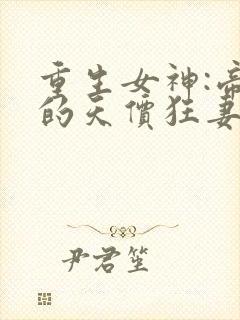 重生女神:帝
的天價狂妻
尹君笙